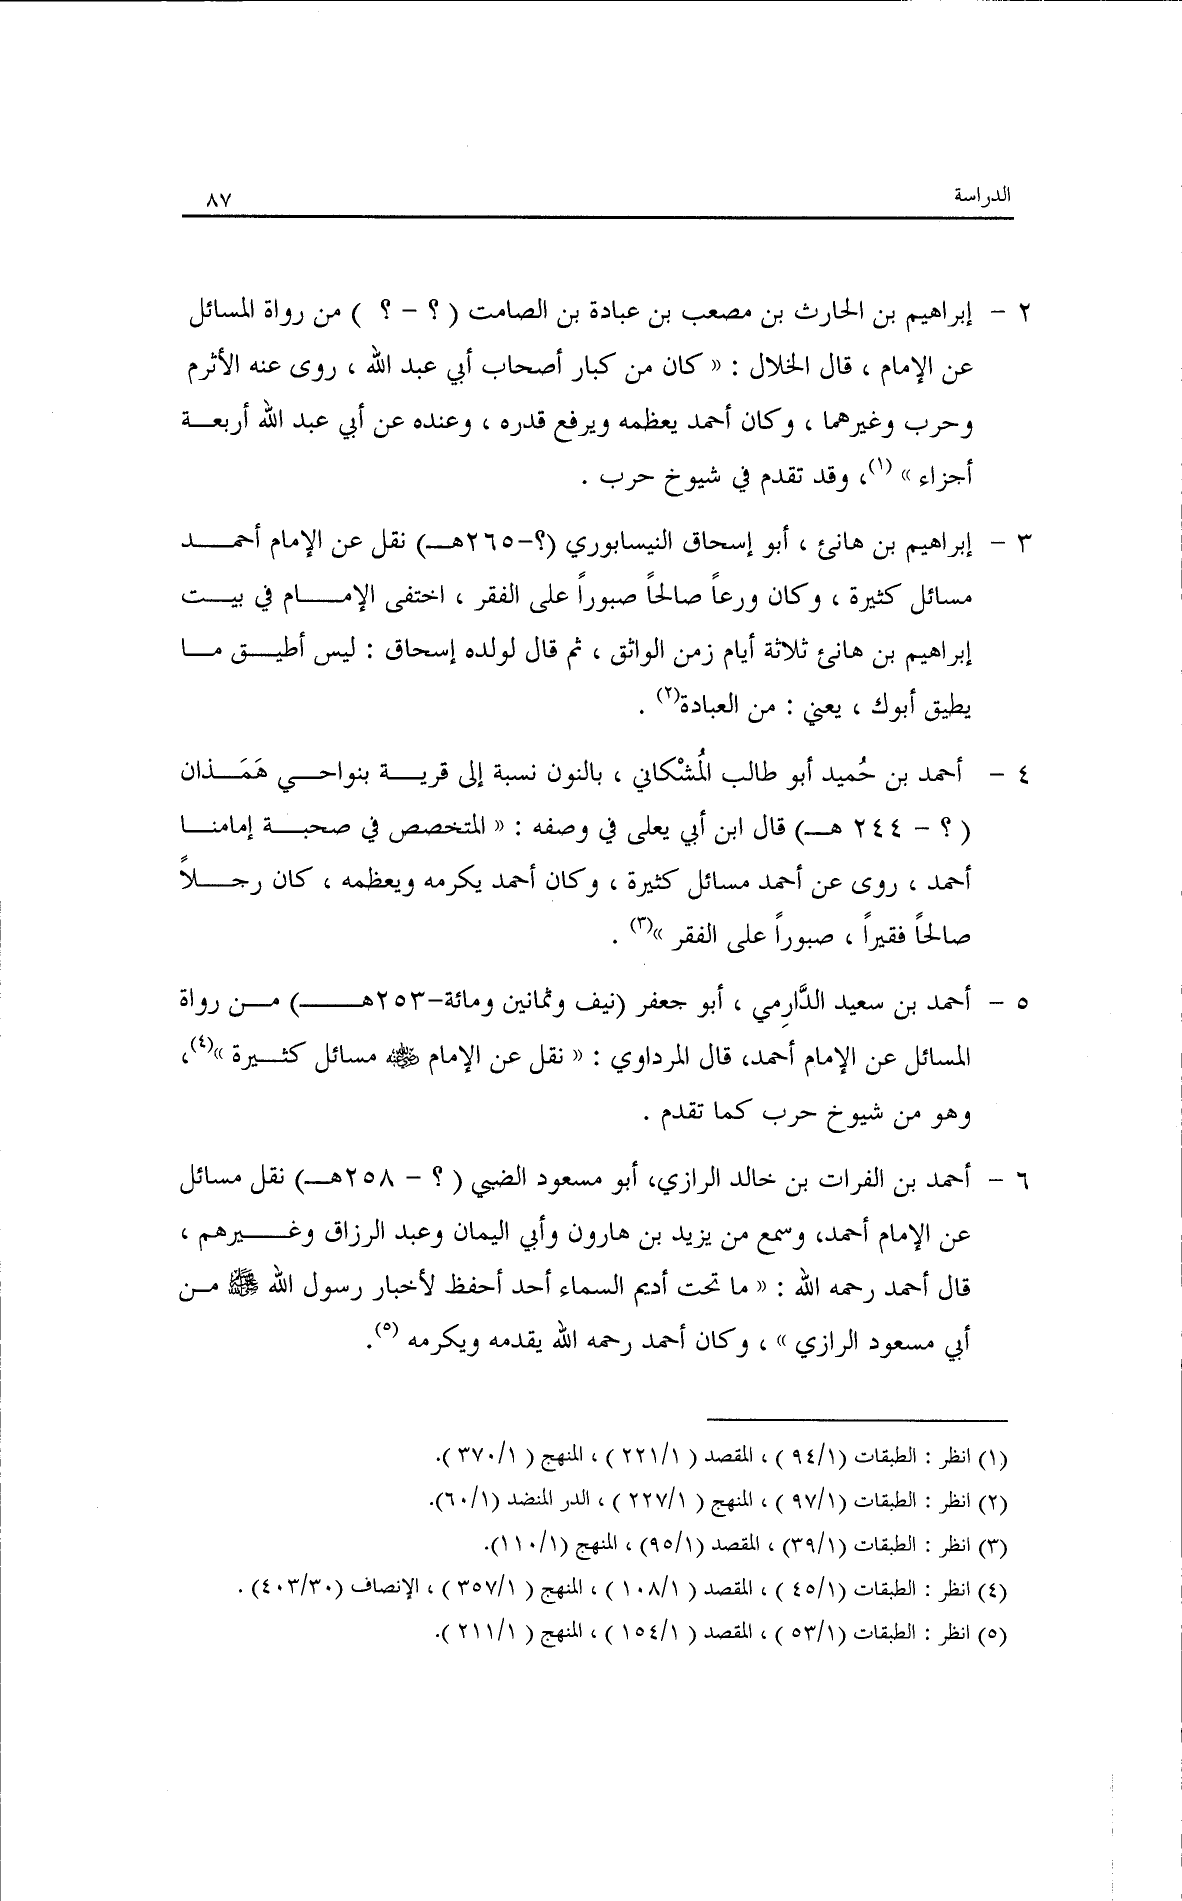 الدراسة ٨٧
٢ - إبراهيم بن الحارث بن مصعب بن عبادة بن الصامت ( ؟ - ؟ ) من رواة المسائل
عن الإمام ، قال الخلال : « كان من كبار أصحاب أبي عبد الله ، روى عنه الأثرم
وحرب وغيرهما ، وكان أحمد يعظمه ويرفع قدره ، وعنده عن أبي عبد الله أربعــة
أجزاء » (١)، وقد تقدم في شيوخ حرب .
٣ - إبراهيم بن هانئ ، أبو إسحاق النيسابوري (؟-٢٦٥هــ) نقل عن الإمام أحمــد
مسائل كثيرة ، وكان ورعاً صالحاً صبوراً على الفقر ، اختفى الإمــام في بيــت
إبراهيم بن هانئ ثلاثة أيام زمن الواثق ، ثم قال لولده إسحاق : ليس أطيــق مــا
يطيق أبوك ، يعني : من العبادة(٢) .
٤ - أحمد بن حُميد أبو طالب المُشْكاني ، بالنون نسبة إلى قريــة بنواحــي هَمَــذان
( ؟ - ٢٤٤ هــ) قال ابن أبي يعلى في وصفه : « المتخصص في صحبــة إمامنــا
أحمد ، روى عن أحمد مسائل كثيرة ، وكان أحمد يكرمه ويعظمه ، كان رجــلاً
صالحاً فقيراً ، صبوراً على الفقر »(٣) .
٥ - أحمد بن سعيد الدَّارِمي ، أبو جعفر (نيف وثمانين ومائة-٢٥٣هــ) مــن رواة
المسائل عن الإمام أحمد، قال المرداوي : « نقل عن الإمام رضي الله عنه مسائل كثــيرة »(٤)،
وهو من شيوخ حرب كما تقدم .
٦ - أحمد بن الفرات بن خالد الرازي، أبو مسعود الضبي ( ؟ - ٢٥٨هــ) نقل مسائل
عن الإمام أحمد، وسمع من يزيد بن هارون وأبي اليمان وعبد الرزاق وغــيرهم ،
قال أحمد رحمه الله : « ما تحت أديم السماء أحد أحفظ لأخبار رسول الله ﷺ مــن
أبي مسعود الرازي » ، وكان أحمد رحمه الله يقدمه ويكرمه (٥).
(١) انظر : الطبقات (٩٤/١ ) ، المقصد ( ٢٢١/١ ) ، المنهج ( ٣٧٠/١ ).
(٢) انظر : الطبقات (٩٧/١ ) ، المنهج ( ٢٢٧/١ ) ، الدر المنضد (٦٠/١).
(٣) انظر : الطبقات (٣٩/١) ، المقصد (٩٥/١) ، المنهج (١١٠/١).
(٤) انظر : الطبقات (٤٥/١ ) ، المقصد ( ١٠٨/١ ) ، المنهج ( ٣٥٧/١ ) ، الإنصاف (٤٠٣/٣٠) .
(٥) انظر : الطبقات (٥٣/١ ) ، المقصد ( ١٥٤/١ ) ، المنهج ( ٢١١/١ ).